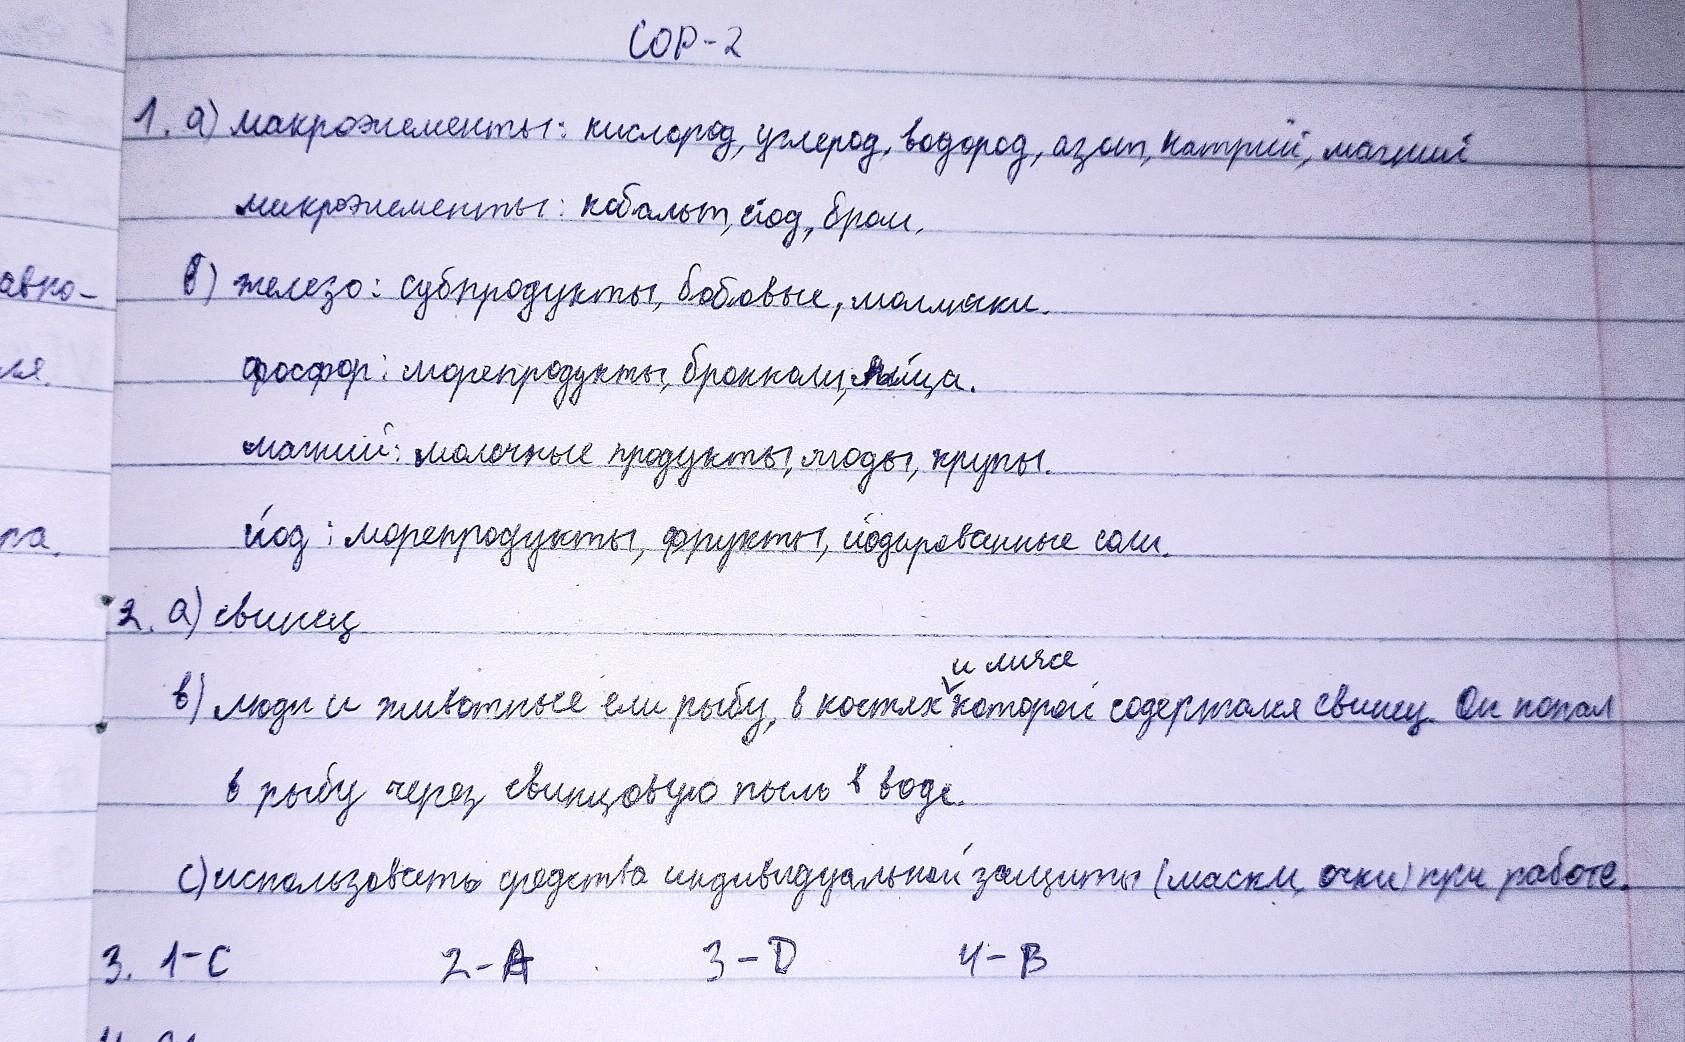 СОР-2
1. а) макроэлементы: кислород, углерод, водород, азот, натрий, магний
микроэлементы: кобальт, йод, бром.
в) железо: субпродукты, бобовые, моллюски.
авко-
фосфор: морепродукты, брокколи, яйца.
ля.
магний: молочные продукты, ягоды, крупы.
йод: морепродукты, фрукты, йодированные соли.
ра.
2. а) свинец
и мясе
в) люди и животные ели рыбу, в костях которой содержался свинец. Он попал
в рыбу через свинцовую пыль в воде.
с) использовать средства индивидуальной защиты (маски, очки) при работе.
3. 1-С 2-А 3-D 4-В